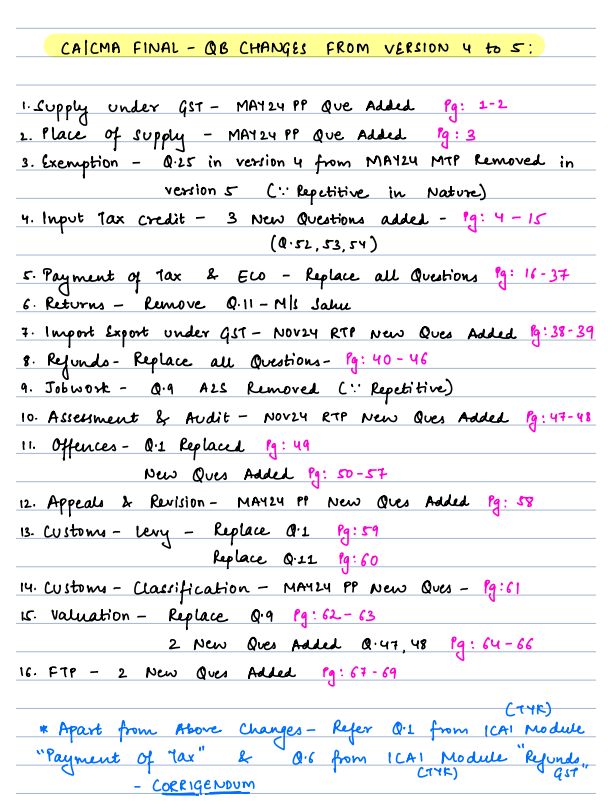 CA/CMA FINAL - QB CHANGES FROM VERSION 4 to 5:
1. Supply under GST - MAY24 PP Que Added Pg: 1-2
2. Place of Supply - MAY24 PP Que Added Pg: 3
3. Exemption - Q.25 in version 4 from MAY24 MTP Removed in
version 5 (∵ Repetitive in Nature)
4. Input Tax Credit - 3 New Questions added - Pg: 4-15
(Q.52, 53, 54)
5. Payment of Tax & ECO - Replace all Questions Pg: 16-37
6. Returns - Remove Q.11 - M/s Sahu
7. Import Export under GST - NOV24 RTP New Ques Added Pg: 38-39
8. Refunds - Replace all Questions - Pg: 40-46
9. Jobwork - Q.9 A2S Removed (∵ Repetitive)
10. Assessment & Audit - NOV24 RTP New Ques Added Pg: 47-48
11. Offences - Q.1 Replaced Pg: 49
New Ques Added Pg: 50-57
12. Appeals & Revision - MAY24 PP New Ques Added Pg: 58
13. Customs - Levy - Replace Q.1 Pg: 59
Replace Q.11 Pg: 60
14. Customs - Classification - MAY24 PP New Ques - Pg: 61
15. Valuation - Replace Q.9 Pg: 62-63
2 New Ques Added Q.47, 48 Pg: 64-66
16. FTP - 2 New Ques Added Pg: 67-69
(TYK)
* Apart from Above Changes - Refer Q.1 from ICAI Module
"Payment of Tax" & Q.6 from ICAI Module "Refunds
(TYK) GST"
- CORRIGENDUM